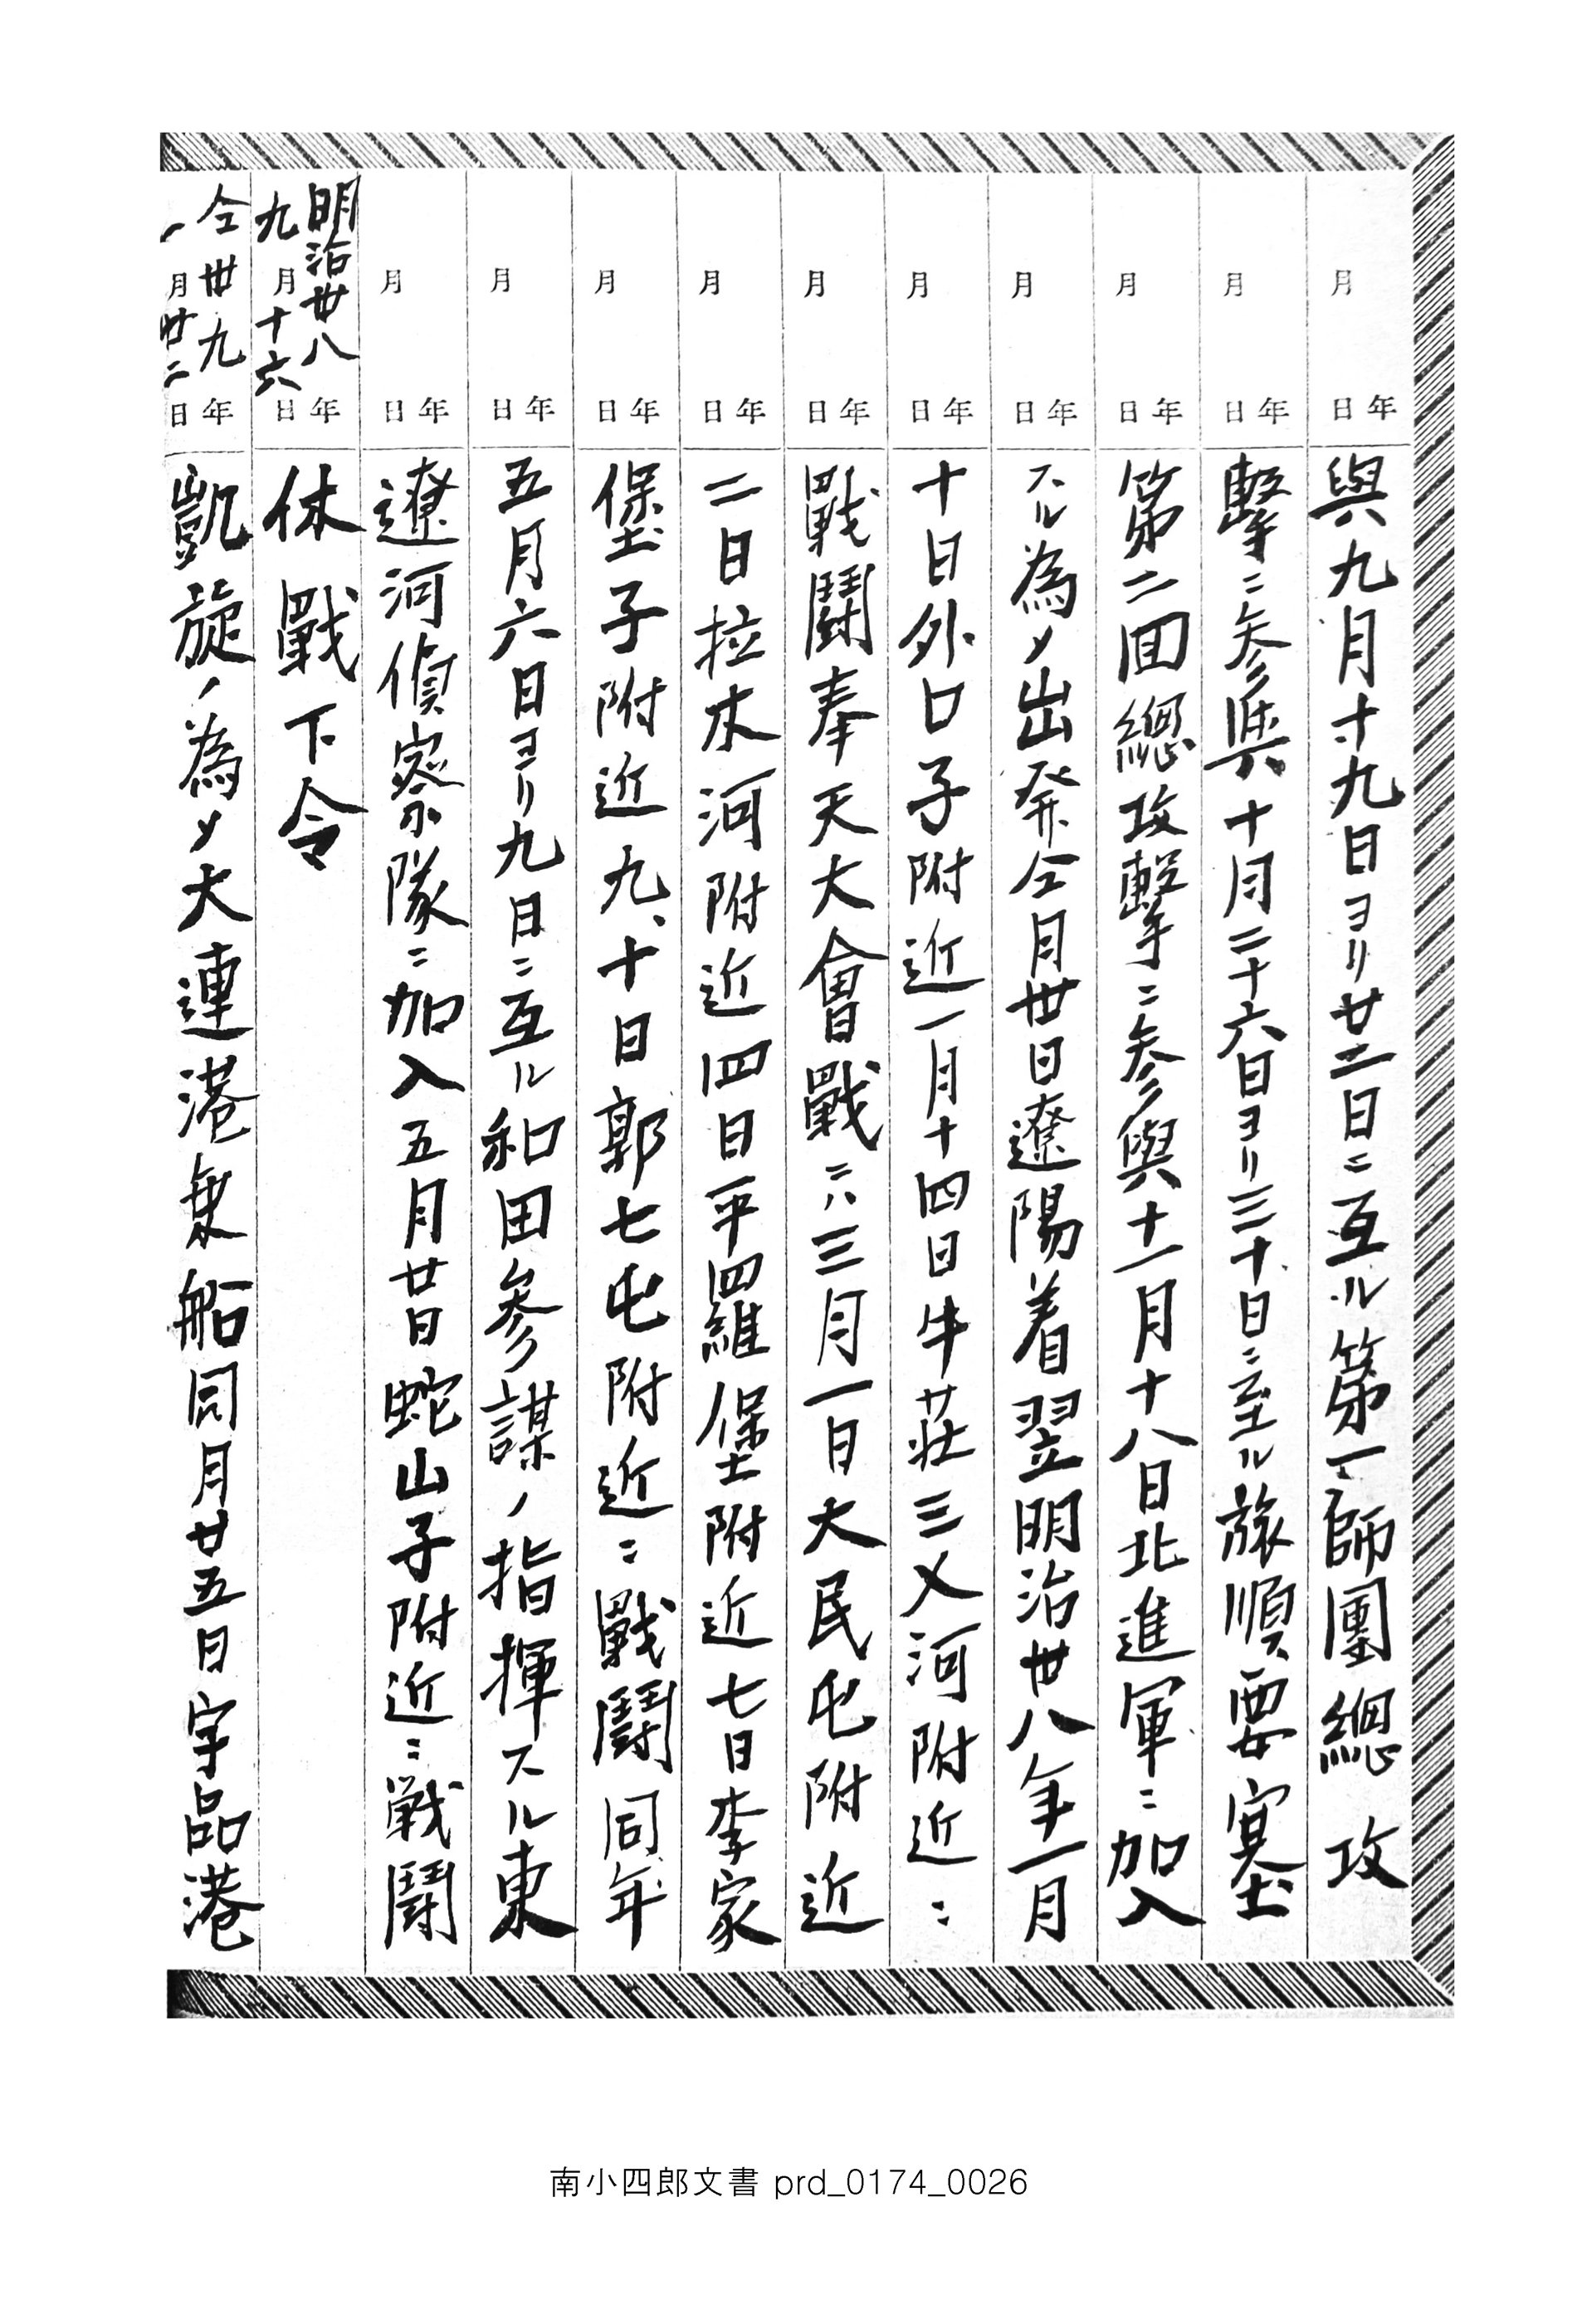 月 日 年 與九月十九日ヨリ廿二日ニ亙ル第一師團總攻
月 日 年 擊ニ参與十月二十六日ヨリ三十日ニ至ル旅順要塞
月 日 年 第二回總攻擊ニ参與十一月十八日北進軍ニ加入
月 日 年 スル為メ出発仝月卅日遼陽着翌明治卅八年一月
月 日 年 十日外口子附近一月十四日牛荘三义河附近ニ
月 日 年 戰鬪奉天大會戰ニハ三月一日大民屯附近
月 日 年 二日拉木河附近四日平羅堡附近七日李家
月 日 年 堡子附近九、十日郭七屯附近ニ戰鬪同年
月 日 年 五月六日ヨリ九日ニ亙ル和田参謀ノ指揮スル東
月 日 年 遼河偵察隊ニ加入五月廿日蛇山子附近ニ戦鬪
明治卅八年九月十六日 休戰下令
仝卅九年一月廿二日 凱旋ノ為メ大連港乗船同月廿五日宇品港
南小四郎文書 prd_0174_0026